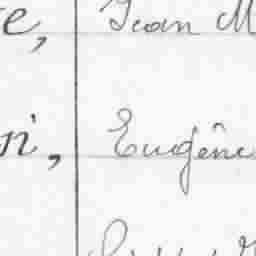 e, Jean M
ni, Eugène